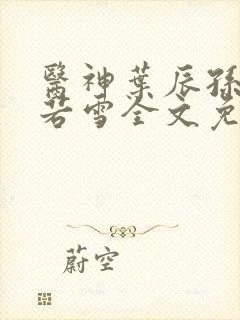 醫神葉辰孫
若雪全文免
蔚空